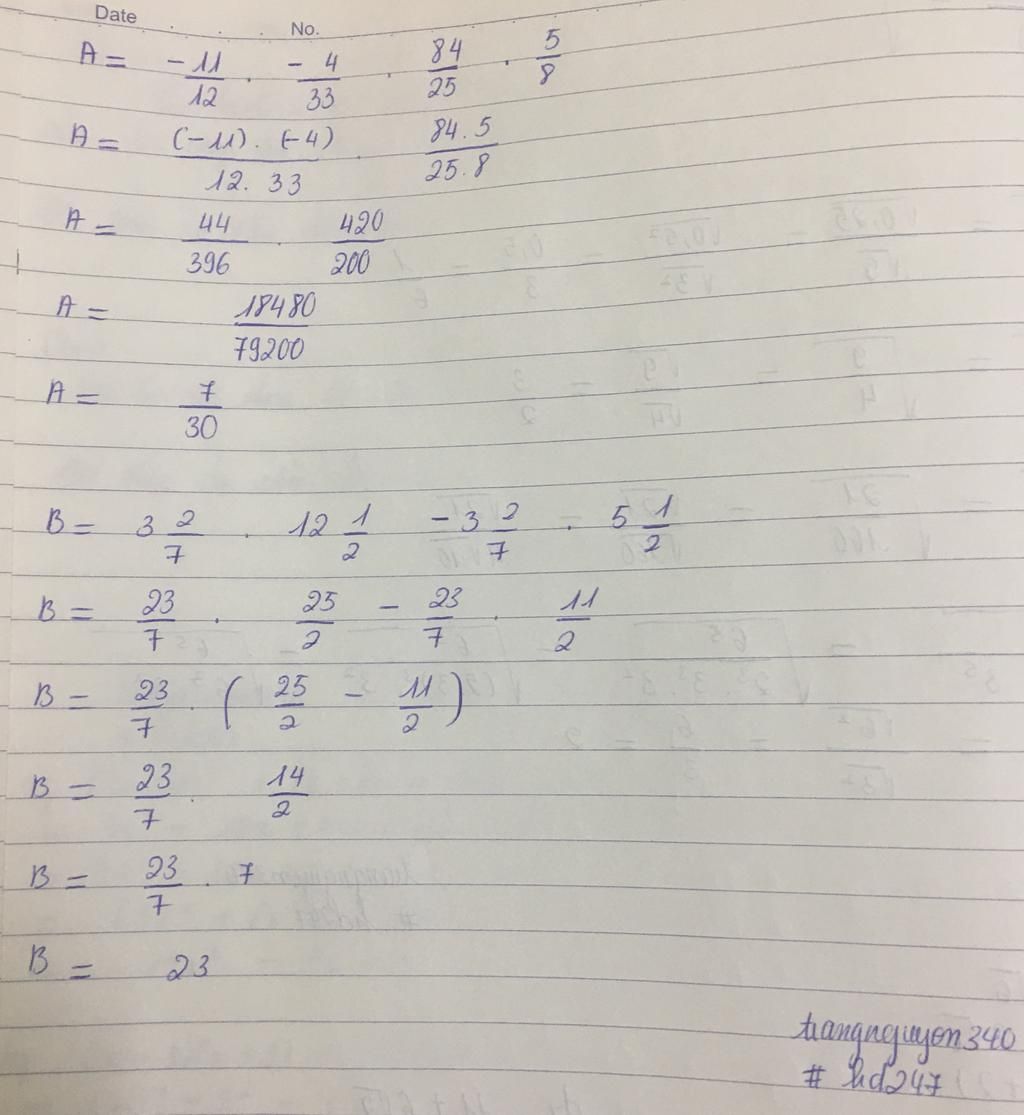 Date No.
A = -11/12 . -4/33 . 84/25 . 5/8
A = (-11) . (-4)/12. 33 . 84.5/25.8
A = 44/396 . 420/200
A = 18480/79200
A = 7/30
B = 3 2/7 . 12 1/2 - 3 2/7 . 5 1/2
B = 23/7 . 25/2 - 23/7 . 11/2
B = 23/7 . ( 25/2 - 11/2 )
B = 23/7 . 14/2
B = 23/7 . 7
B = 23
trangnguyen340
# hd247